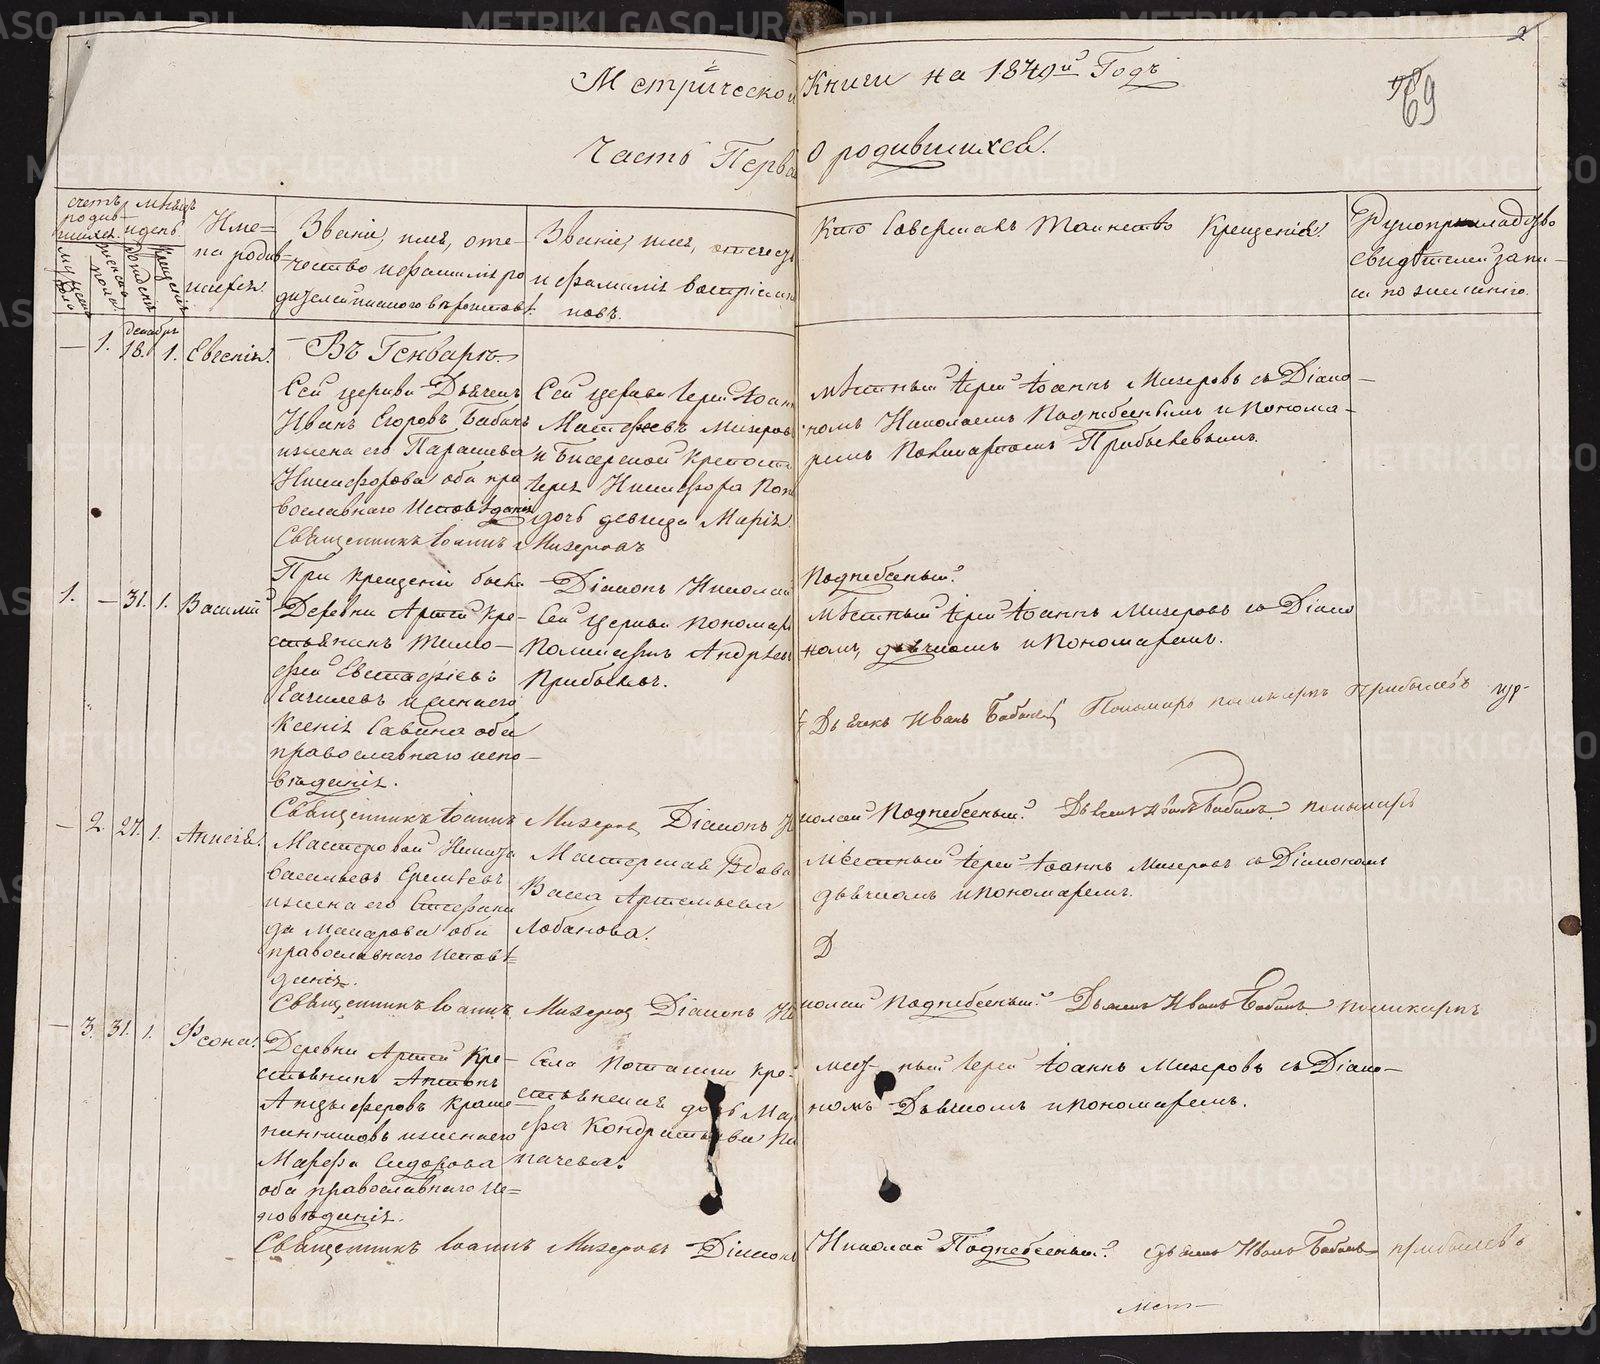 Метрической Книги на 1840й Годъ
69
Часть Перва О родившихся.
счетъ родив-
шихся
мѣсяцъ и день
Име-
на родив-
шихся.
Званіе, имя, оте-
чество и фамилія ро
дителей и какого вѣроисповѣ
Званіе, имя, отечест
и фамилія воспріемни
ковъ.
Кто совершалъ таинство Крещенія.
Рукоприкладство
свидѣтелей запи-
си по желанію.
Въ Генварѣ
— 1. декабрь 18. 1. Евгенія.
Сей церкви Дьячекъ
Иванъ Егоровъ Бабинъ
и жена его Парасковья
Никифорова оба пра
вославнаго Исповѣданія
Сей церкви Іерей Іоанн
Матфеевъ Мизеров
и Бисерской крепости
Іерея Никифора Поп
дочь девица Марія.
мѣстный Іерей Іоаннъ Мизеровъ съ Діако-
номъ Николаемъ Поднебеснымъ и Понома-
ремъ Поликарпомъ Прибылевымъ.
Священникъ Іоаннъ Мизеровъ
При крещеніи были Діаконъ Николай Поднебесный.
1. — 31. 1. Василій
Деревни Артей кре-
стьянинъ Тимо-
фей Евстафіевъ
и жена его
Ксенія Савина оба
православнаго испо-
вѣданія.
Сей Церкви пономарь
Поликарпъ Андрѣев
Прибылевъ.
мѣстный Іерей Іоаннъ Мизеровъ съ Діако
номъ, дьячкомъ и Пономаремъ.
Дьячекъ Иванъ Бабинъ Пономарь поликарпъ прибылевъ
Священникъ Іоаннъ Мизеровъ Діаконъ Николай Поднебесный. Дьячекъ Иванъ Бабинъ пономарь
— 2. 27. 1. Анисія.
Мастеровой Никита
Васильевъ Еремѣевъ
и жена его Степани
да Макарова оба
православнаго исповѣ-
данія.
Мастерская Вдова
Васса Артемьева
Лобанова.
мѣстный Іерей Іоаннъ Мизеровъ съ Діакономъ
дьячкомъ и Пономаремъ.
Д
Священникъ Іоаннъ Мизеровъ Діаконъ Николай Поднебесный. Дьячекъ Иванъ Бабинъ поликарпъ
— 3. 31. 1. Фсона.
Деревни Артей кре-
стьянинъ Антонъ
и жена его
Марфа Сидорова
оба православнаго Ис-
повѣданія.
Села Поташки кре-
стьянская дочь Мар
фа Кондратьева Па
мест ный Іерей Іоаннъ Мизеровъ съ Діако-
номъ Дьячкомъ и Пономаремъ.
Священникъ Іоаннъ Мизеровъ Діаконъ Николай Поднебесный. Дьячекъ Иванъ Бабинъ прибылевъ
мест-
METRIKI.GASO-URAL.RU